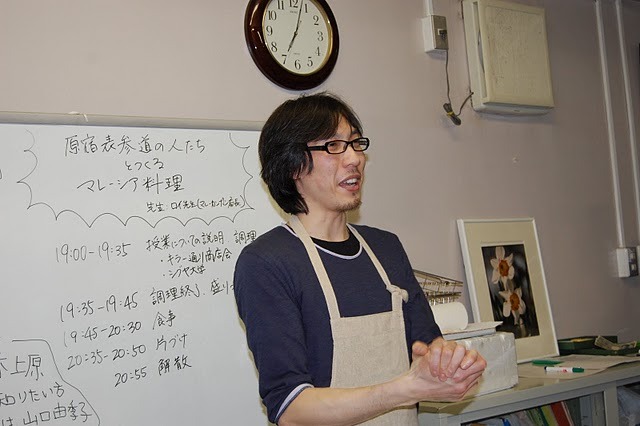 原宿表参道の人たち
とつくる
マレーシア料理
先生:ロイ先生(マレーカンポン店長)
19:00-19:35 授業についての説明 調理
・キラー通り商店会
・シブヤ大学
19:35-19:45 調理終了、盛り
19:45-20:30 食事
20:35-20:50 片づけ
20:55 解散
上原
知りたい方
は山口由季子
12
1
2
3
4
5
6
7
8
9
10
11